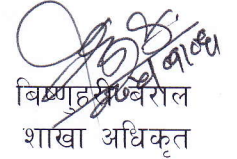 बिष्णुहरि बराल
शाखा अधिकृत